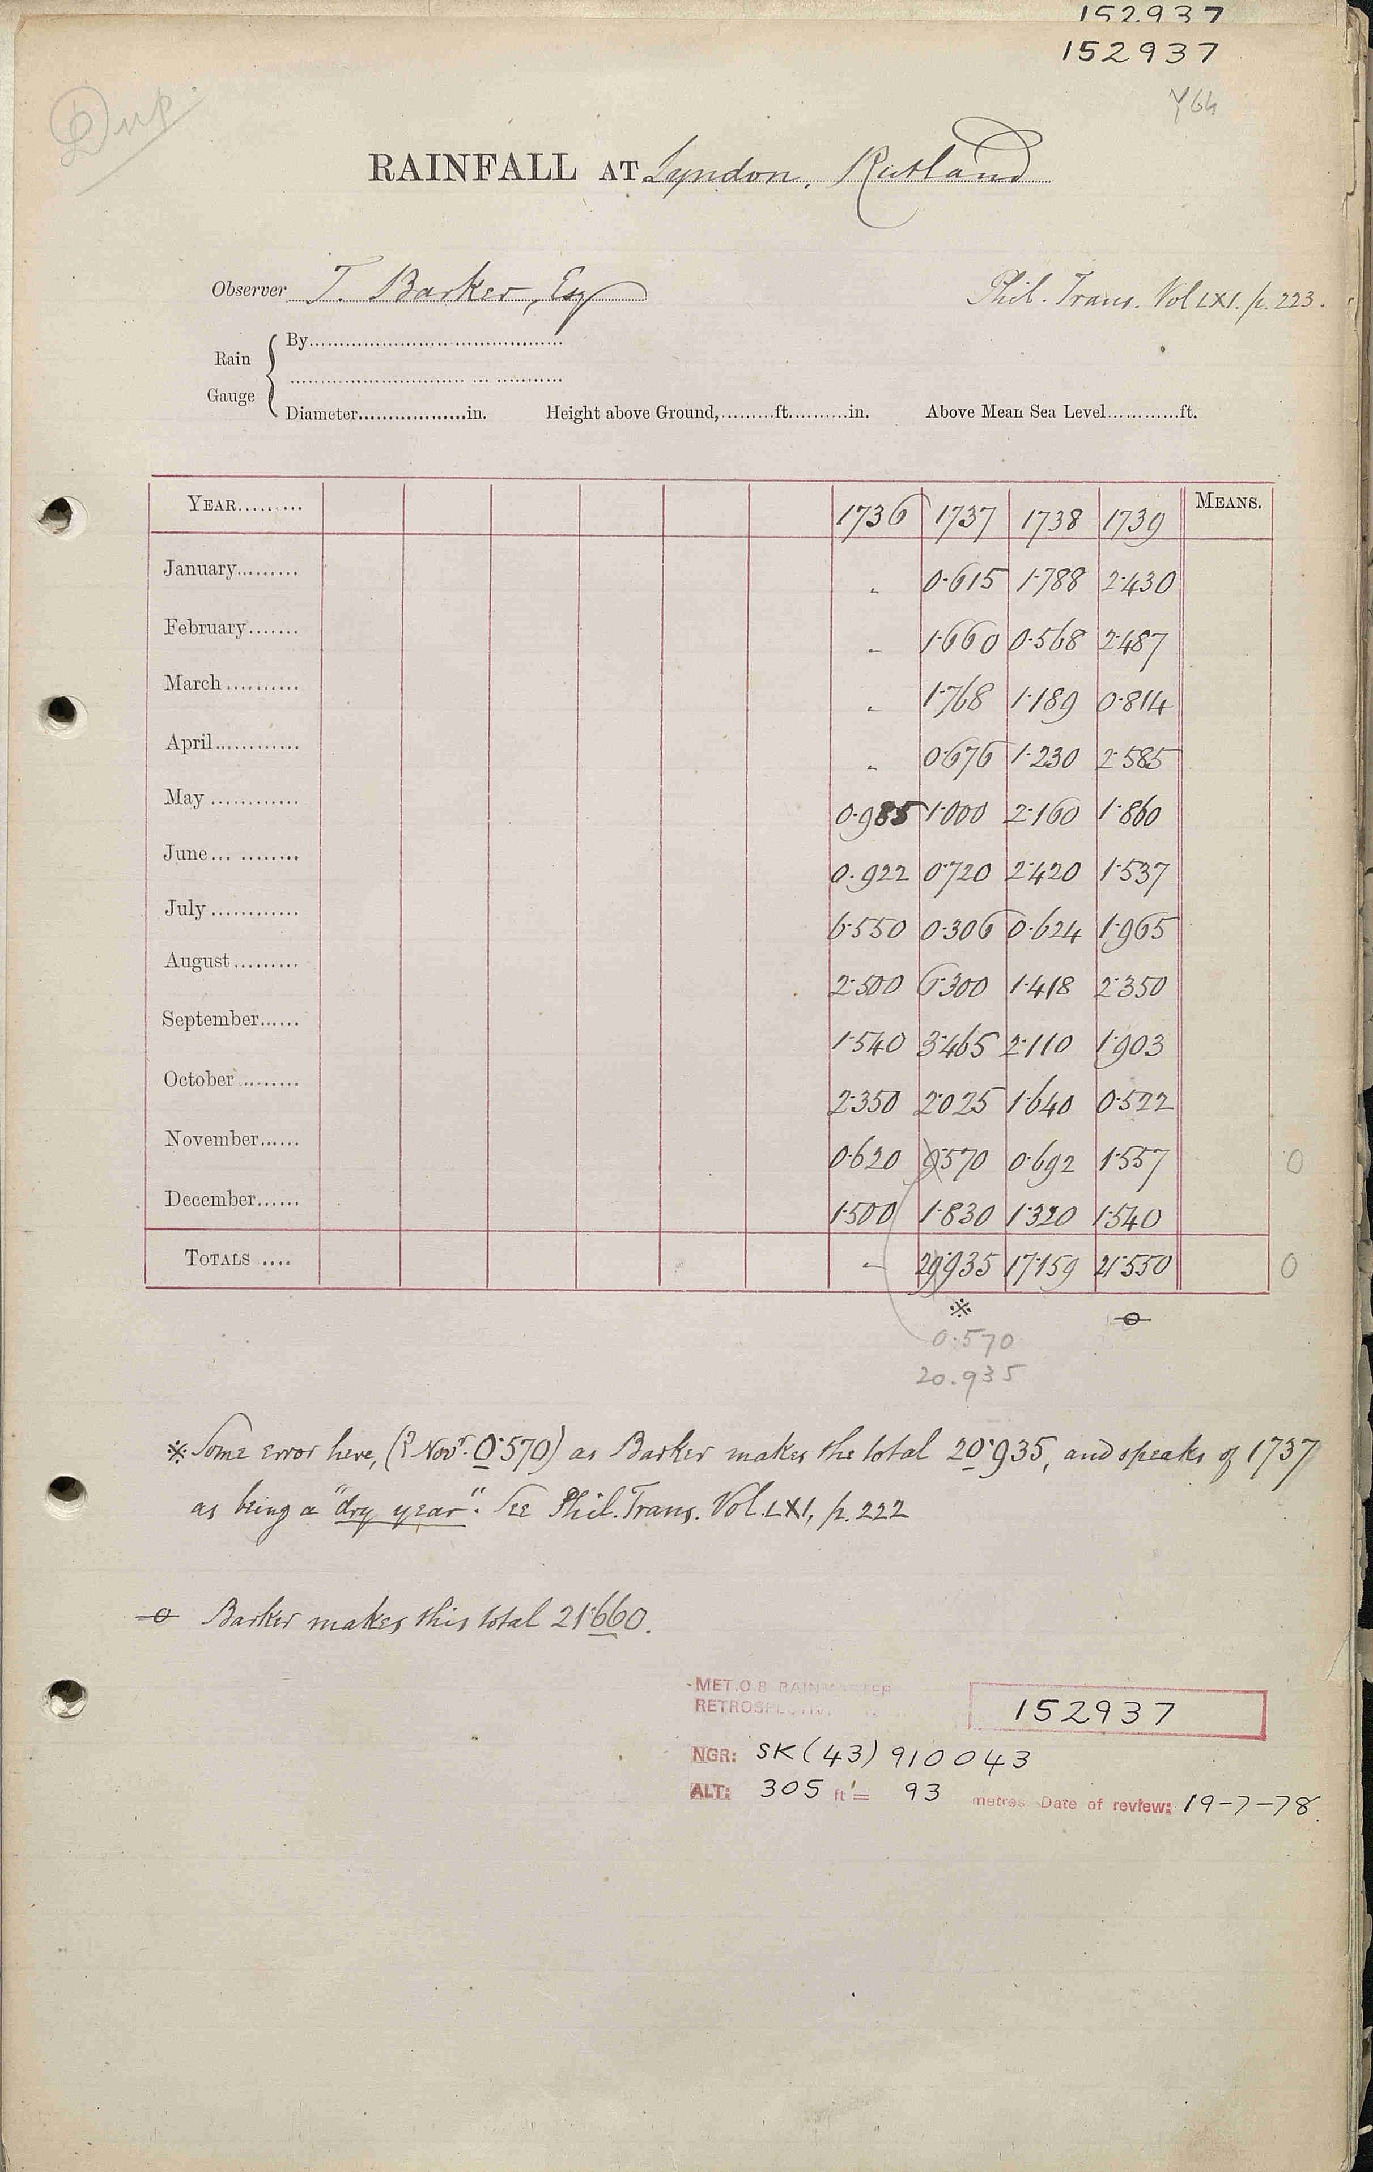 152937
152937
Y64
Dup.
RAINFALL AT Lyndon, Rutland
Observer T. Barker, Esq
Phil. Trans. Vol LXI. p. 223.
Rain Gauge
By
Diameter in. Height above Ground, ft. in. Above Mean Sea Level ft.
YEAR 1736 1737 1738 1739 MEANS.
January " 0·615 1·788 2·430
February " 1·660 0·568 2·487
March " 1·768 1·189 0·814
April " 0·676 1·230 2·585
May 0·985 1·000 2·160 1·860
June 0·922 0·720 2·420 1·537
July 6·550 0·306 0·624 1·965
August 2·500 6·300 1·418 2·350
September 1·540 3·465 2·110 1·903
October 2·350 2·025 1·640 0·522
November 0·620 9·570 0·692 1·557 0
December 1·500 1·830 1·320 1·540
TOTALS – 29·935 17·159 21·550 0
※ ⦵
0·570
20.935
※ Some error here, (? Novr. 0·570) as Barker makes the total 20·935, and speaks of 1737
as being a "dry year". See Phil. Trans. Vol. LXI, p. 222
⦵ Barker makes this total 21·660.
MET.O.8 RAINMASTER
152937
NGR: SK (43) 910043
ALT: 305 ft = 93 metres Date of review: 19-7-78.